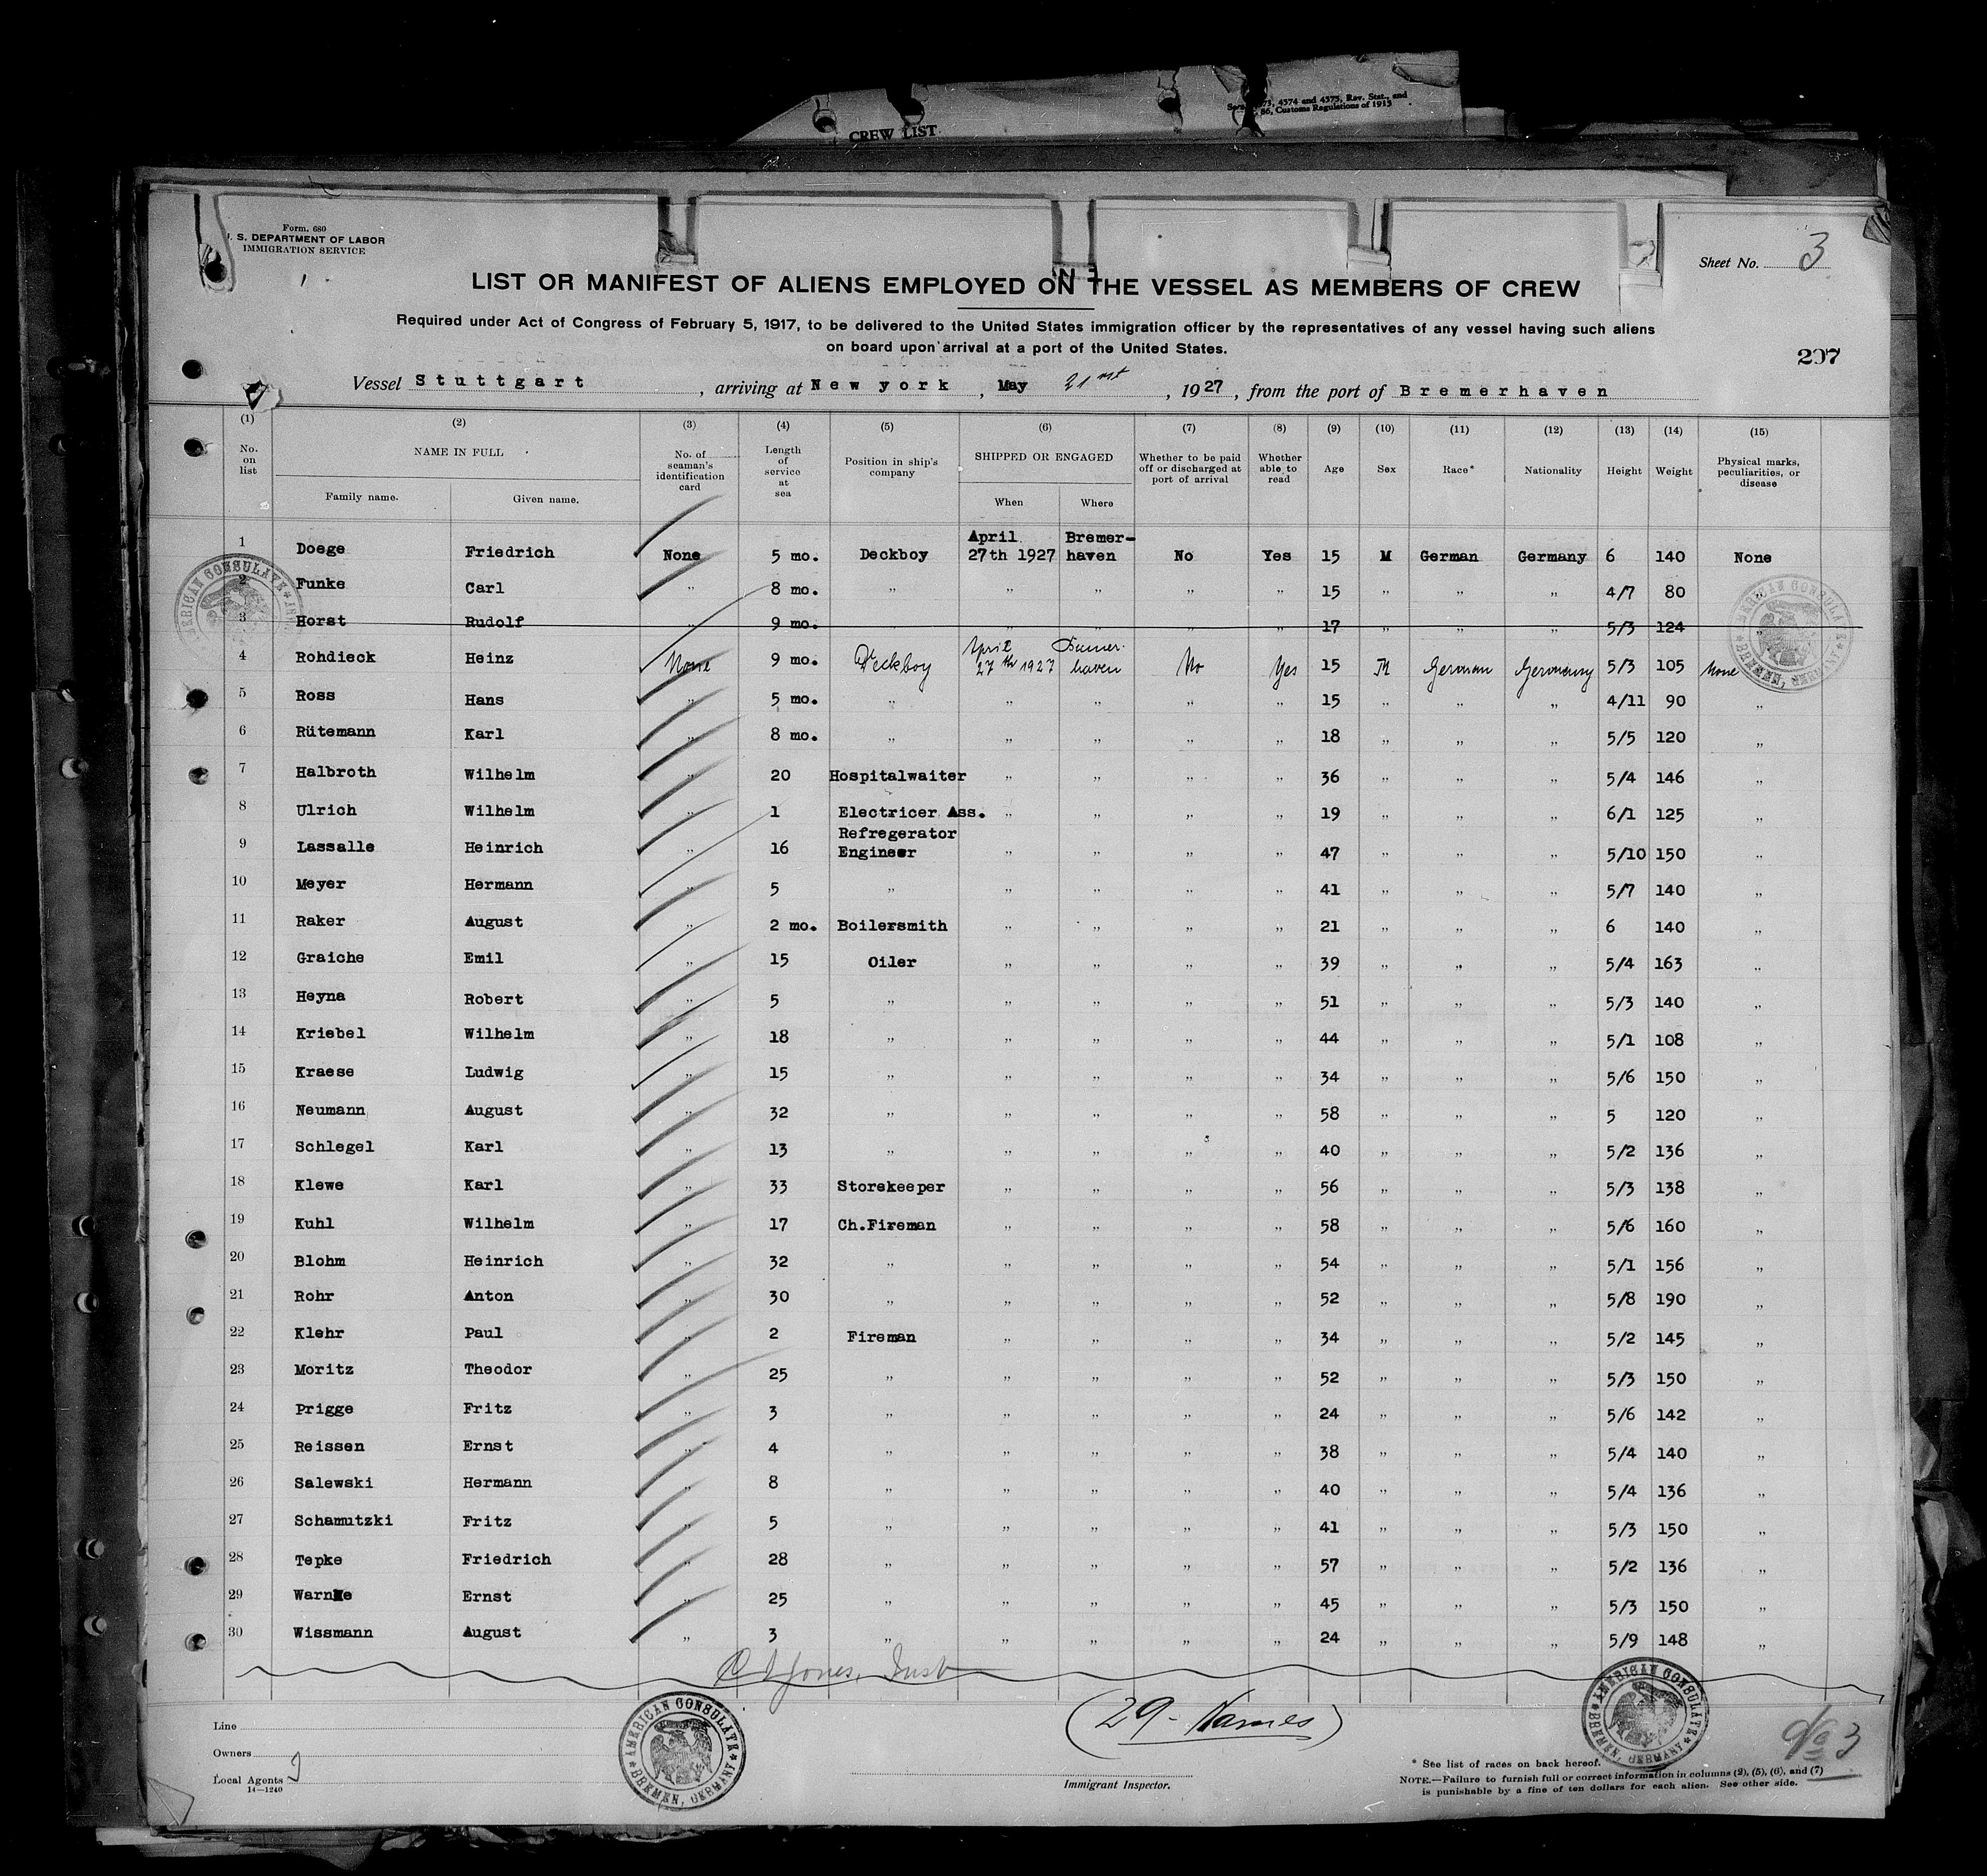 CREW LIST
4374 and 4375, Rev. Stat., and
86, Customs Regulations of 1915
Form. 680
U. S. DEPARTMENT OF LABOR
IMMIGRATION SERVICE
Sheet No. 3
LIST OR MANIFEST OF ALIENS EMPLOYED ON THE VESSEL AS MEMBERS OF CREW
Required under Act of Congress of February 5, 1917, to be delivered to the United States immigration officer by the representatives of any vessel having such aliens
on board upon arrival at a port of the United States.
207
Vessel Stuttgart, arriving at New york, May 21st, 1927, from the port of Bremerhaven
(1) (2) (3) (4) (5) (6) (7) (8) (9) (10) (11) (12) (13) (14) (15)
No. on list NAME IN FULL Family name. Given name. No. of seaman's identification card Length of service at sea Position in ship's company SHIPPED OR ENGAGED When Where Whether to be paid off or discharged at port of arrival Whether able to read Age Sex Race* Nationality Height Weight Physical marks, peculiarities, or disease
1 Doege Friedrich None 5 mo. Deckboy April 27th 1927 Bremer-haven No Yes 15 M German Germany 6 140 None
2 Funke Carl „ 8 mo. „ „ „ „ „ 15 „ „ „ 4/7 80 „
3 Horst Rudolf „ 9 mo. „ „ „ „ „ 17 „ „ „ 5/3 124 „
4 Rohdieck Heinz None 9 mo. Deckboy April 27th 1927 Bremer-haven No Yes 15 M German Germany 5/3 105 None
5 Ross Hans „ 5 mo. „ „ „ „ „ 15 „ „ „ 4/11 90 „
6 Rütemann Karl „ 8 mo. „ „ „ „ „ 18 „ „ „ 5/5 120 „
7 Halbroth Wilhelm „ 20 Hospitalwaiter „ „ „ „ 36 „ „ „ 5/4 146 „
8 Ulrich Wilhelm „ 1 Electricer Ass. „ „ „ „ 19 „ „ „ 6/1 125 „
9 Lassalle Heinrich „ 16 Refregerator Engineer „ „ „ „ 47 „ „ „ 5/10 150 „
10 Meyer Hermann „ 5 „ „ „ „ „ 41 „ „ „ 5/7 140 „
11 Raker August „ 2 mo. Boilersmith „ „ „ „ 21 „ „ „ 6 140 „
12 Graiche Emil „ 15 Oiler „ „ „ „ 39 „ „ „ 5/4 163 „
13 Heyna Robert „ 5 „ „ „ „ „ 51 „ „ „ 5/3 140 „
14 Kriebel Wilhelm „ 18 „ „ „ „ „ 44 „ „ „ 5/1 108 „
15 Kraese Ludwig „ 15 „ „ „ „ „ 34 „ „ „ 5/6 150 „
16 Neumann August „ 32 „ „ „ „ „ 58 „ „ „ 5 120 „
17 Schlegel Karl „ 13 „ „ „ „ „ 40 „ „ „ 5/2 136 „
18 Klewe Karl „ 33 Storekeeper „ „ „ „ 56 „ „ „ 5/3 138 „
19 Kuhl Wilhelm „ 17 Ch.Fireman „ „ „ „ 58 „ „ „ 5/6 160 „
20 Blohm Heinrich „ 32 „ „ „ „ „ 54 „ „ „ 5/1 156 „
21 Rohr Anton „ 30 „ „ „ „ „ 52 „ „ „ 5/8 190 „
22 Klehr Paul „ 2 Fireman „ „ „ „ 34 „ „ „ 5/2 145 „
23 Moritz Theodor „ 25 „ „ „ „ „ 52 „ „ „ 5/3 150 „
24 Prigge Fritz „ 3 „ „ „ „ „ 24 „ „ „ 5/6 142 „
25 Reissen Ernst „ 4 „ „ „ „ „ 38 „ „ „ 5/4 140 „
26 Salewski Hermann „ 8 „ „ „ „ „ 40 „ „ „ 5/4 136 „
27 Schamutzki Fritz „ 5 „ „ „ „ „ 41 „ „ „ 5/3 150 „
28 Tepke Friedrich „ 28 „ „ „ „ „ 57 „ „ „ 5/2 136 „
29 Warnke Ernst „ 25 „ „ „ „ „ 45 „ „ „ 5/3 150 „
30 Wissmann August „ 3 „ „ „ „ „ 24 „ „ „ 5/9 148 „
Jones, Insp
(29 - Names)
AMERICAN CONSULATE
BREMEN, GERMANY
AMERICAN CONSULATE
BREMEN, GERMANY
Line
Owners
Local Agents
14—1240
Immigrant Inspector.
* See list of races on back hereof.
NOTE.—Failure to furnish full or correct information in columns (2), (5), (6), and (7)
is punishable by a fine of ten dollars for each alien. See other side.